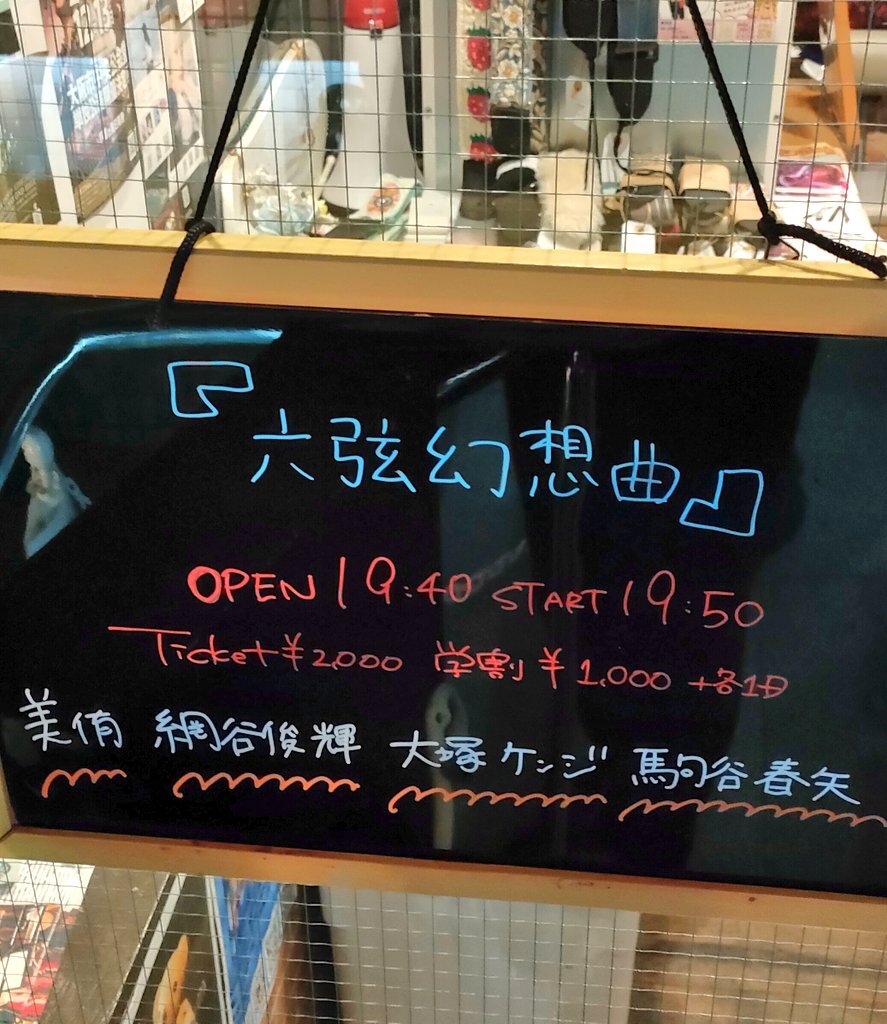 『六弦幻想曲』
OPEN 19:40 START 19:50
Ticket ¥2,000 学割 ¥1,000 +各1D
美侑 網谷俊輝 大塚ケンジ 駒谷春矢